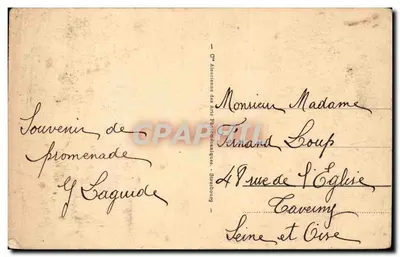 Souvenir de
promenade
Y Laguide
Cie Alsacienne des Arts Photomécaniques, - Strasbourg
Monsieur Madame
Fernand Loup
48 rue de l'Eglise
Taverny
Seine et Oise
CPAPHIL